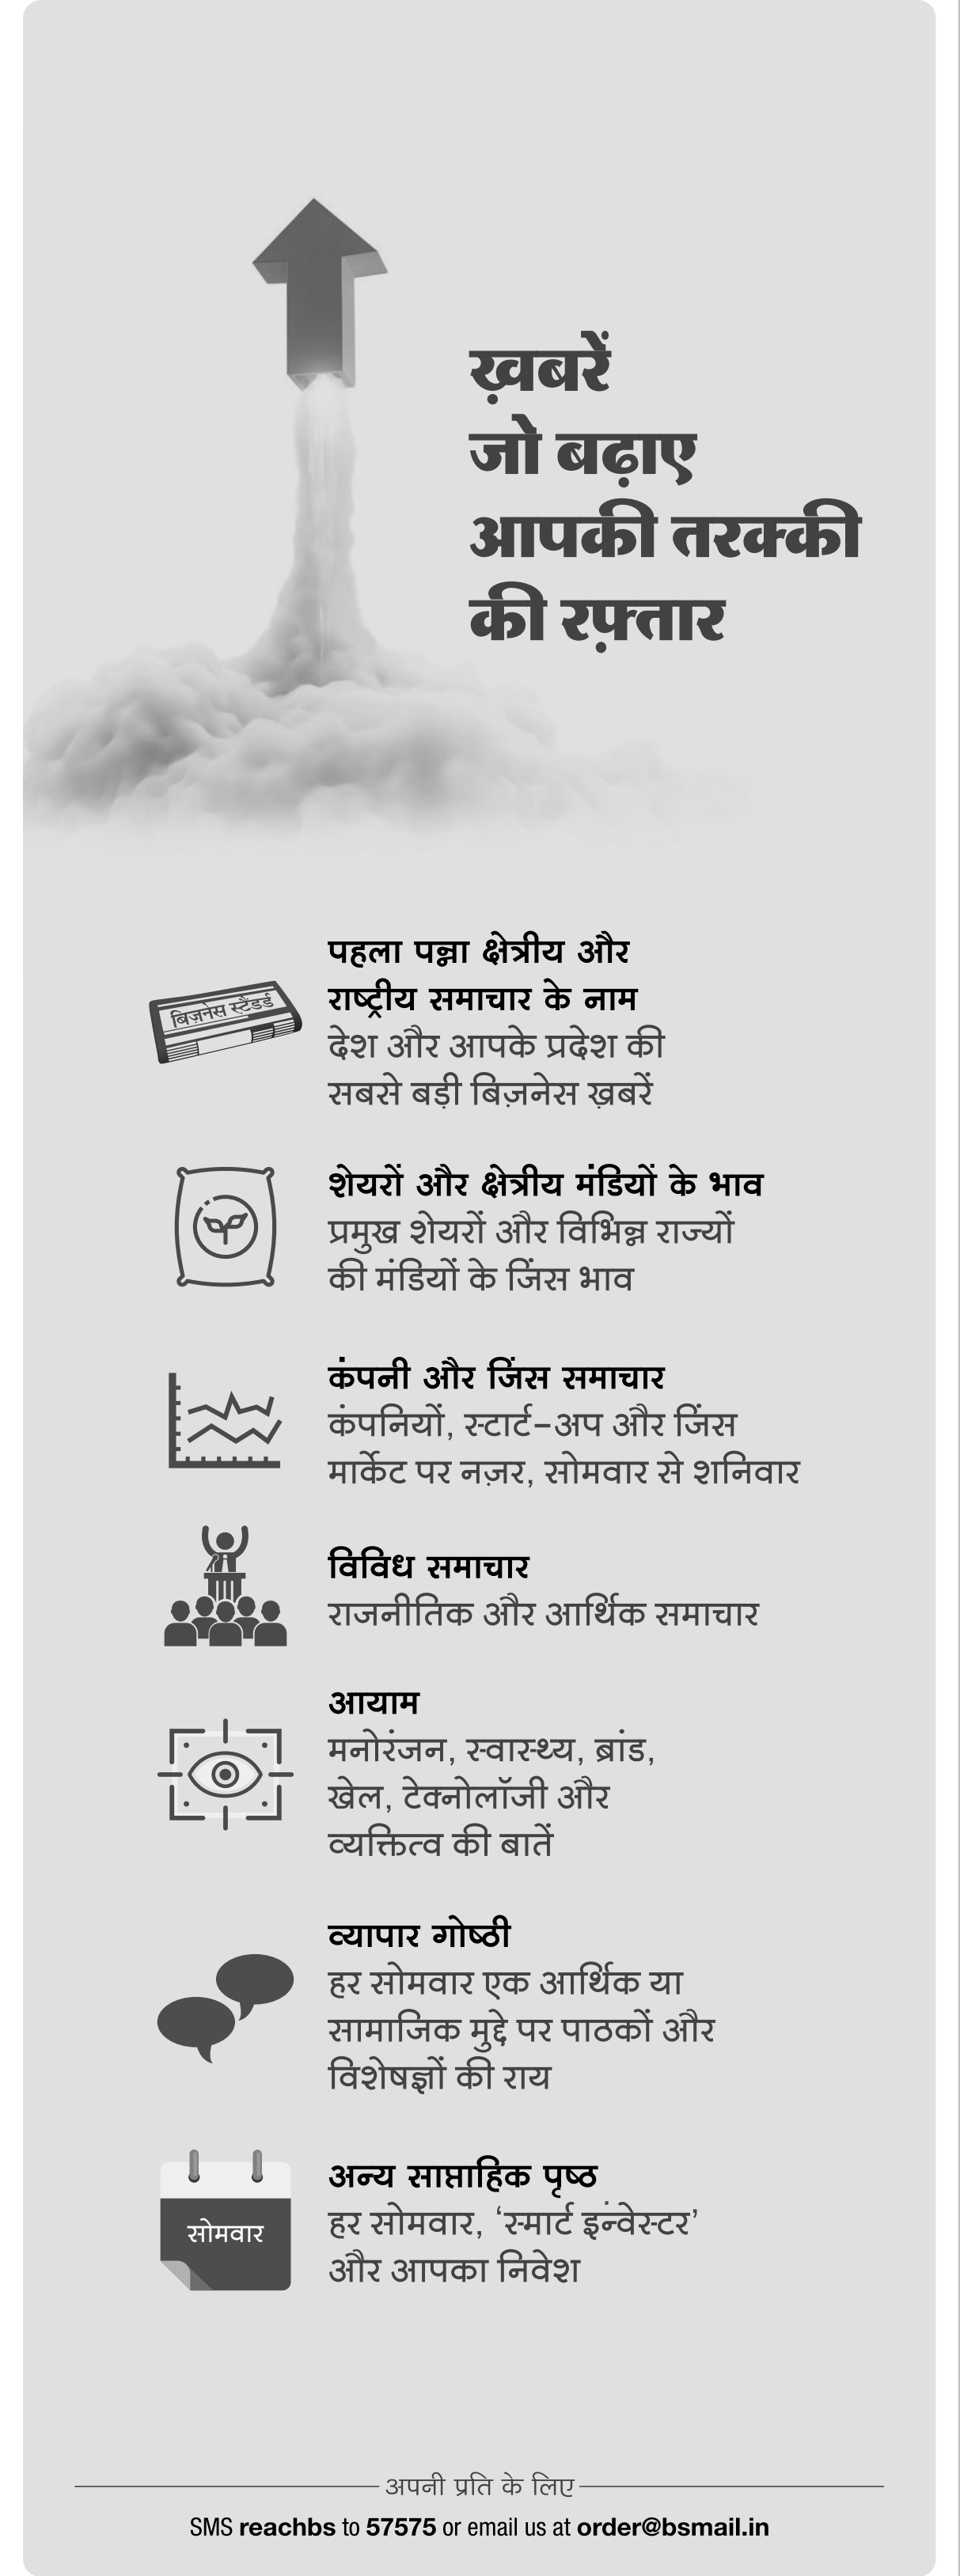 ख़बरें
जो बढ़ाए
आपकी तरक्की
की रफ़्तार
बिज़नेस स्टैंडर्ड
पहला पन्ना क्षेत्रीय और
राष्ट्रीय समाचार के नाम
देश और आपके प्रदेश की
सबसे बड़ी बिज़नेस ख़बरें
शेयरों और क्षेत्रीय मंडियों के भाव
प्रमुख शेयरों और विभिन्न राज्यों
की मंडियों के जिंस भाव
कंपनी और जिंस समाचार
कंपनियों, स्टार्ट-अप और जिंस
मार्केट पर नज़र, सोमवार से शनिवार
विविध समाचार
राजनीतिक और आर्थिक समाचार
आयाम
मनोरंजन, स्वास्थ्य, ब्रांड,
खेल, टेक्नोलॉजी और
व्यक्तित्व की बातें
व्यापार गोष्ठी
हर सोमवार एक आर्थिक या
सामाजिक मुद्दे पर पाठकों और
विशेषज्ञों की राय
सोमवार
अन्य साप्ताहिक पृष्ठ
हर सोमवार, ‘स्मार्ट इन्वेस्टर’
और आपका निवेश
अपनी प्रति के लिए
SMS reachbs to 57575 or email us at order@bsmail.in